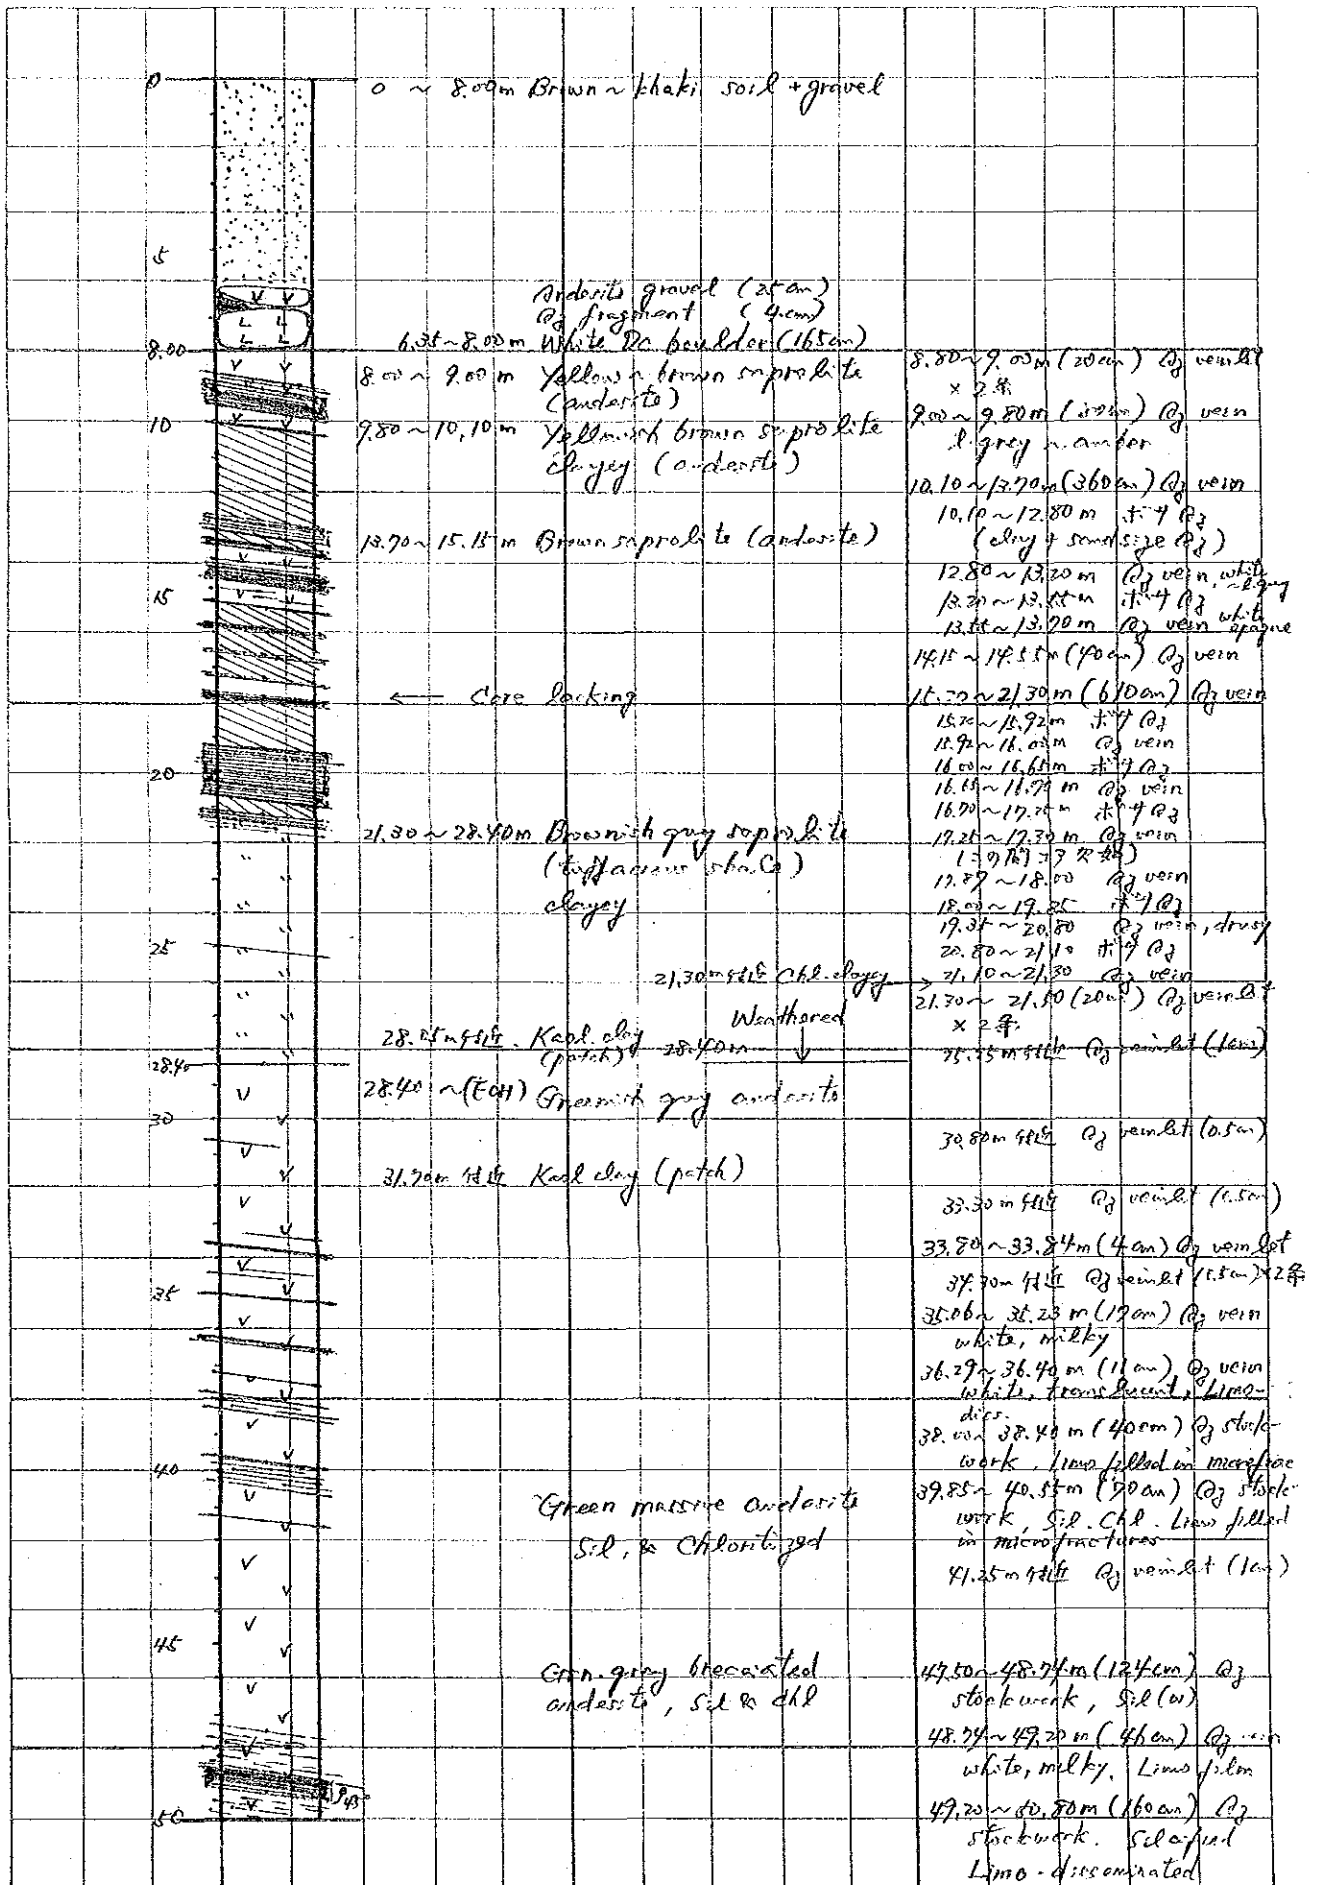 0
0 ~ 8.00m Brown ~ khaki soil + gravel
5
Andesite gravel (25cm)
Qz fragment (4cm)
6.35~8.00m White Da boulder (165cm)
8.00
8.00 ~ 9.00 m Yellow ~ brown saprolite
(andesite)
10
9.80 ~ 10.10 m Yellowish brown saprolite
clayey (andesite)
13.70 ~ 15.15 m Brown saprolite (andesite)
15
← Core lacking
20
21.30 ~ 28.40m Brownish gray saprolite
(tuffaceous shale)
clayey
25
21.30m付近 Chl. clayey →
Weathered
28.40m
28.05m付近. Kaol. clay
(patch)
28.40
28.40 ~ (EOH) Greenish gray andesite
30
31.70m 付近 Kaol clay (patch)
35
40
Green massive andesite
Sil, & Chloritized
45
Grn. gray brecciated
andesite, Sil & chl
50
8.80~9.00m (20cm) Qz veinlet
× 2条
9.00 ~ 9.80m (80cm) Qz vein
l. grey ~ amber
10.10~13.70m (360cm) Qz vein
10.10~12.80 m ボサ Qz
(clay + sand size Qz)
12.80~13.20m Qz vein, white
~l. gray
13.20~13.55m ボサ Qz
13.55~13.70m Qz vein white
opaque
14.15~14.55m (40cm) Qz vein
15.20~21.30m (610cm) Qz vein
15.20~15.92m ボサ Qz
15.92~16.00m Qz vein
16.00~16.65m ボサ Qz
16.65~16.70 m Qz vein
16.70~17.25m ボサ Qz
17.25~17.30m Qz vein
17.87~18.00 Qz vein
18.00~19.35 ボサ Qz
19.35~20.80 Qz vein, drusy
20.80~21.10 ボサ Qz
21.10~21.30 Qz vein
21.30~ 21.50 (20cm) Qz veinlet
× 2条
25.25m付近 Qz veinlet (1cm)
30.80m 付近 Qz veinlet (0.5cm)
33.30m 付近 Qz veinlet (0.5cm)
33.80~33.84m (4cm) Qz veinlet
34.30m 付近 Qz veinlet (1.5cm)×2条
35.06~ 35.23 m (17cm) Qz vein
white, milky
36.29~36.40m (11cm) Qz vein
white, translucent, Limo-
diss.
38.00~ 38.40 m (40cm) Qz stock-
work, limo filled in microfrac
39.85~ 40.55m (70cm) Qz stock-
work, Sil. Chl. Limo filled
in microfractures
41.25m 付近 Qz veinlet (1cm)
47.50~48.74m (124cm) Qz
stockwork, Sil (w)
48.74~49.20m (46cm) Qz vein
white, milky. Limo film
49.20~50.80m (160cm) Qz
stockwork. Silicified
Limo-disseminated